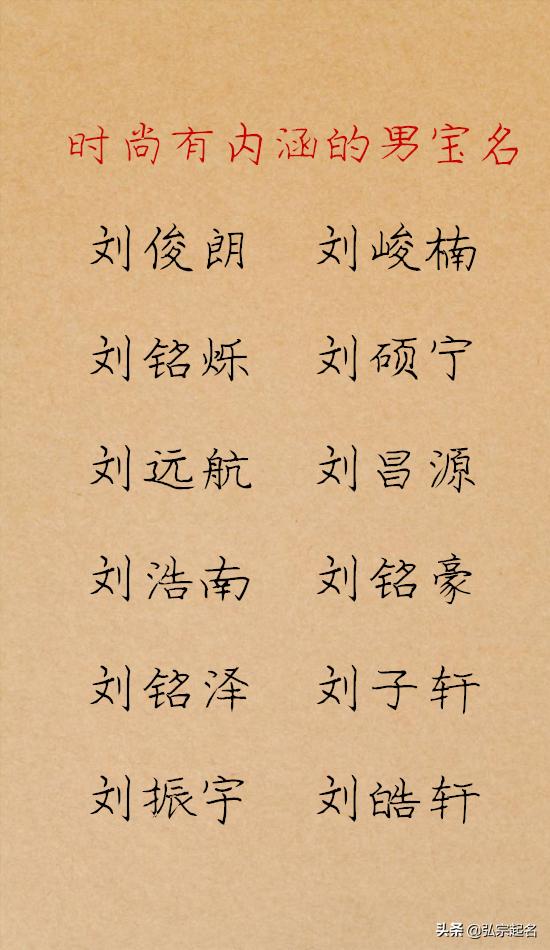 时尚有内涵的男宝名
刘俊朗 刘峻楠
刘铭烁 刘硕宁
刘远航 刘昌源
刘浩南 刘铭豪
刘铭泽 刘子轩
刘振宇 刘皓轩
头条 @弘宗起名